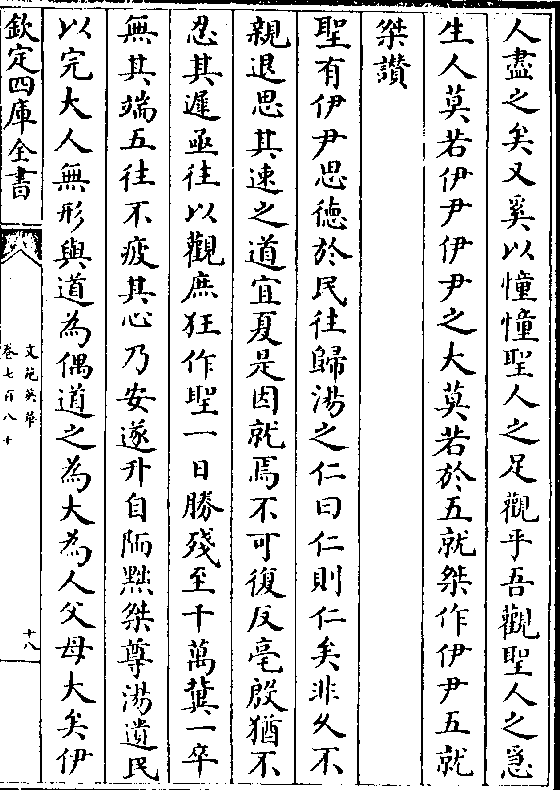 人盡之矣又奚以憧憧聖人之足觀乎吾觀聖人之急
生人莫若伊尹伊尹之大莫若於五就桀作伊尹五就
桀讃
聖有伊尹思德於民往歸湯之仁曰仁則仁矣非久不
親退思其速之道宜夏是因就焉不可復反亳殷猶不
忍其遲亟往以觀庶狂作聖一日勝殘至千萬冀一卒
無其端五往不疲其心乃安遂升自陑黜桀尊湯遺民
以完大人無形與道為偶道之為大為人父母大矣伊
欽定四庫全書
文苑英華
卷七百八十
十八